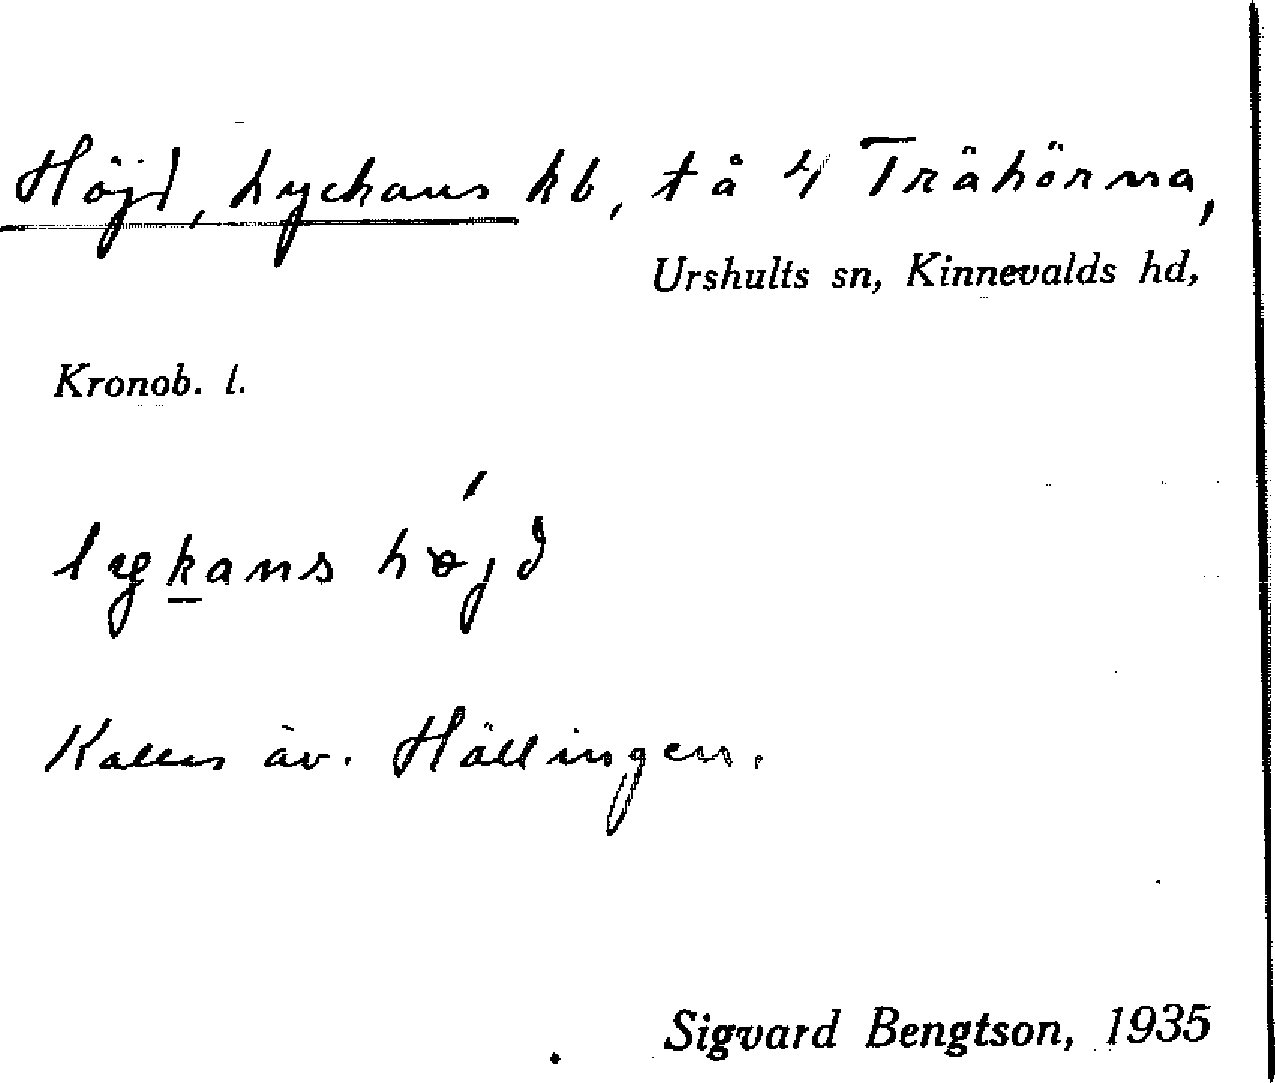 Höjd, Lyckans hb, tå 4 Trähörna,
Urshults sn, Kinnevalds hd,
Kronob. l.
lykans højd
Kallas äv. Hällingen.
Sigvard Bengtson, 1935